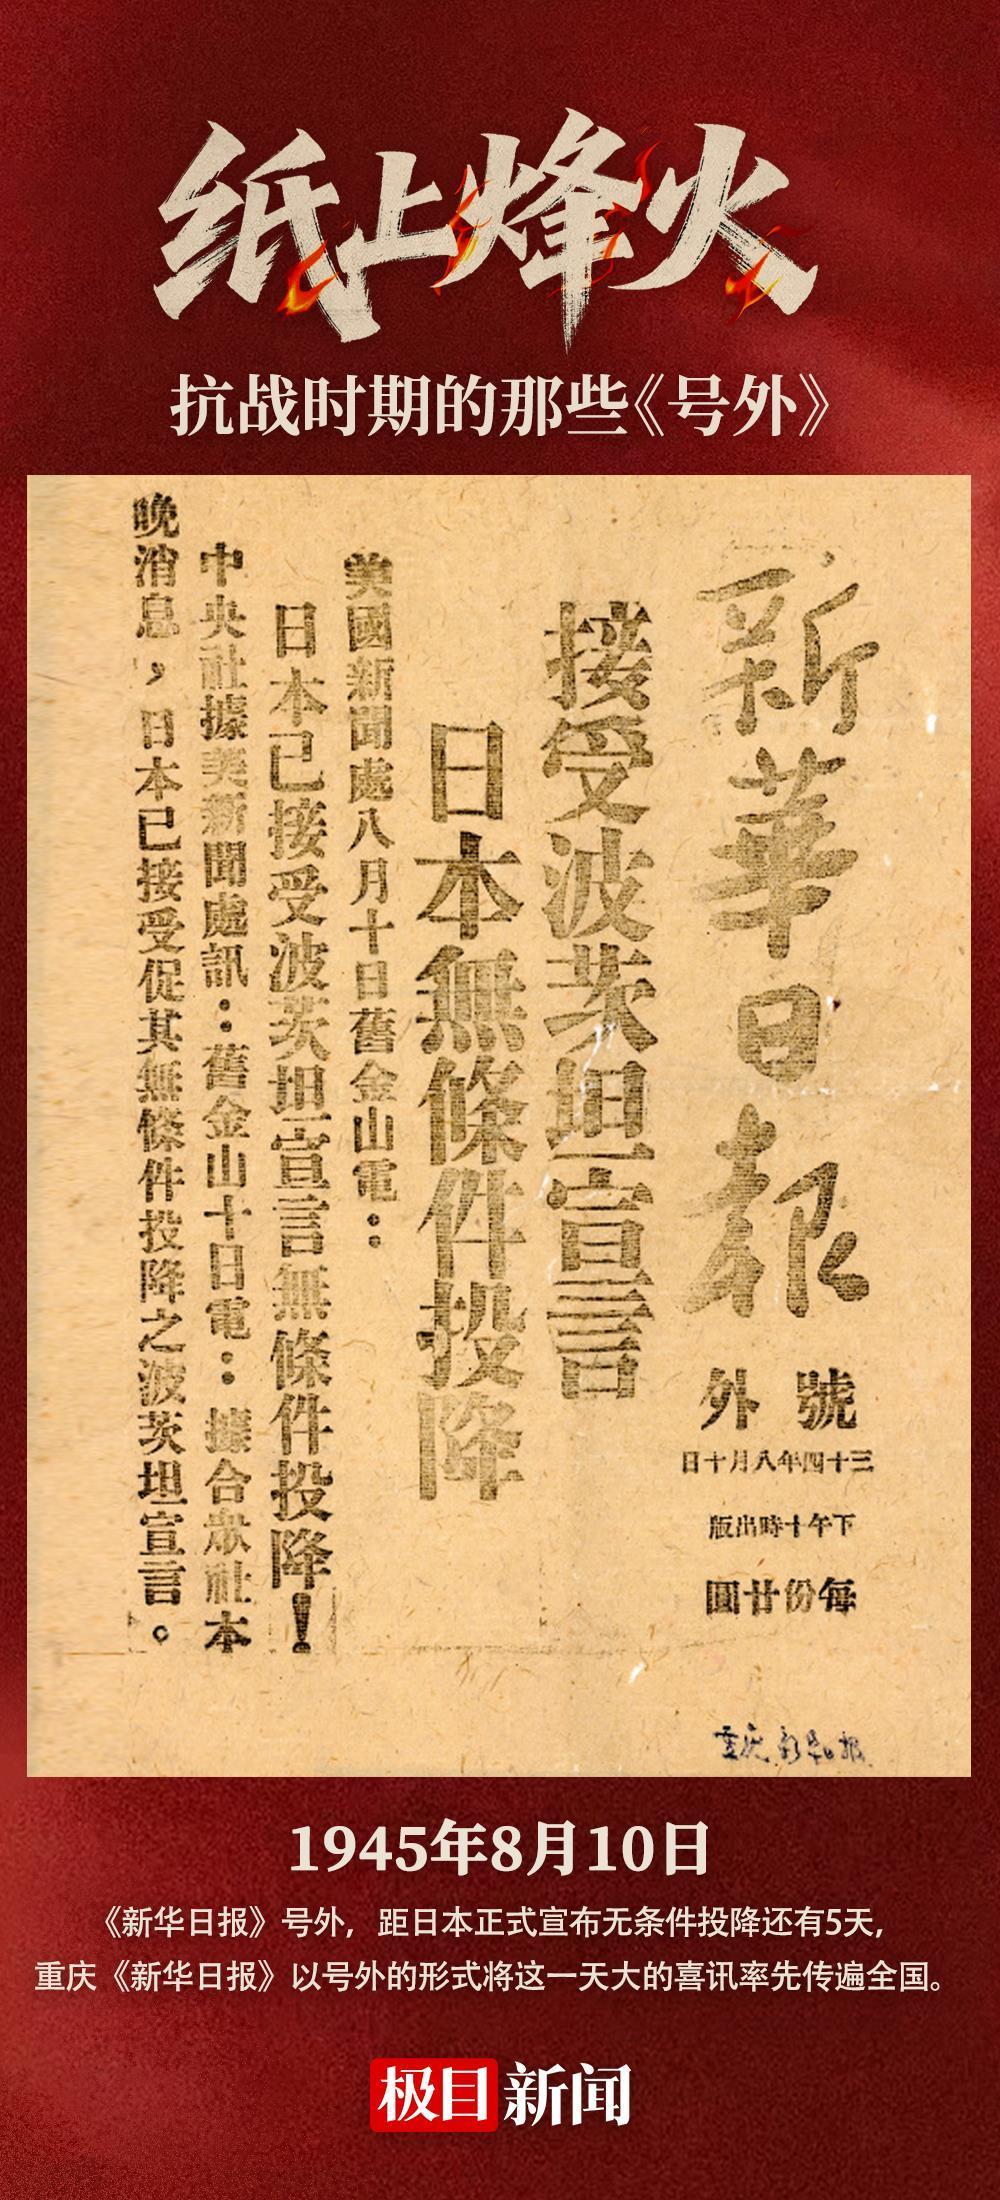 纸上烽火
抗战时期的那些《号外》
新華日報
號外
三十四年八月十日
下午十時出版
每份廿圓
重庆新华日报
接受波茨坦宣言
日本無條件投降
美國新聞處八月十日舊金山電：
日本已接受波茨坦宣言無條件投降！
中央社據美新聞處訊：舊金山十日電：據合眾社本
晚消息，日本已接受促其無條件投降之波茨坦宣言。
1945年8月10日
《新华日报》号外，距日本正式宣布无条件投降还有5天，
重庆《新华日报》以号外的形式将这一天大的喜讯率先传遍全国。
极目新闻